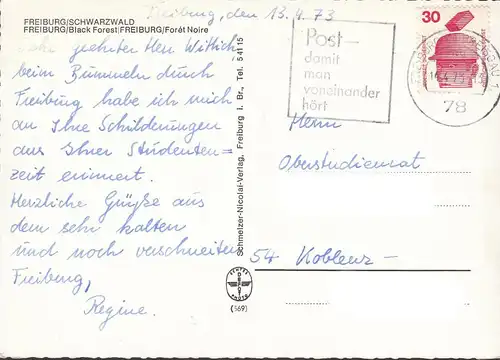 Freiburg, den 13.4.73
FREIBURG/SCHWARZWALD
FREIBURG/Black Forest/FREIBURG/Forêt Noire
Sehr geehrter Herr Wittich
beim Bummeln durch
Freiburg habe ich mich
an Ihre Schilderungen
aus Ihrer Studenten=
zeit erinnert.
Herzliche Grüße aus
dem sehr kalten
und noch verschneiten
Freiburg,
Regine.
Schmelzer-Nicolai-Verlag, Freiburg i. Br., Tel. 5 41 15
(569)
Post–
damit
man
voneinander
hört
30
78
Herrn
Oberstudienrat
54 Koblenz –